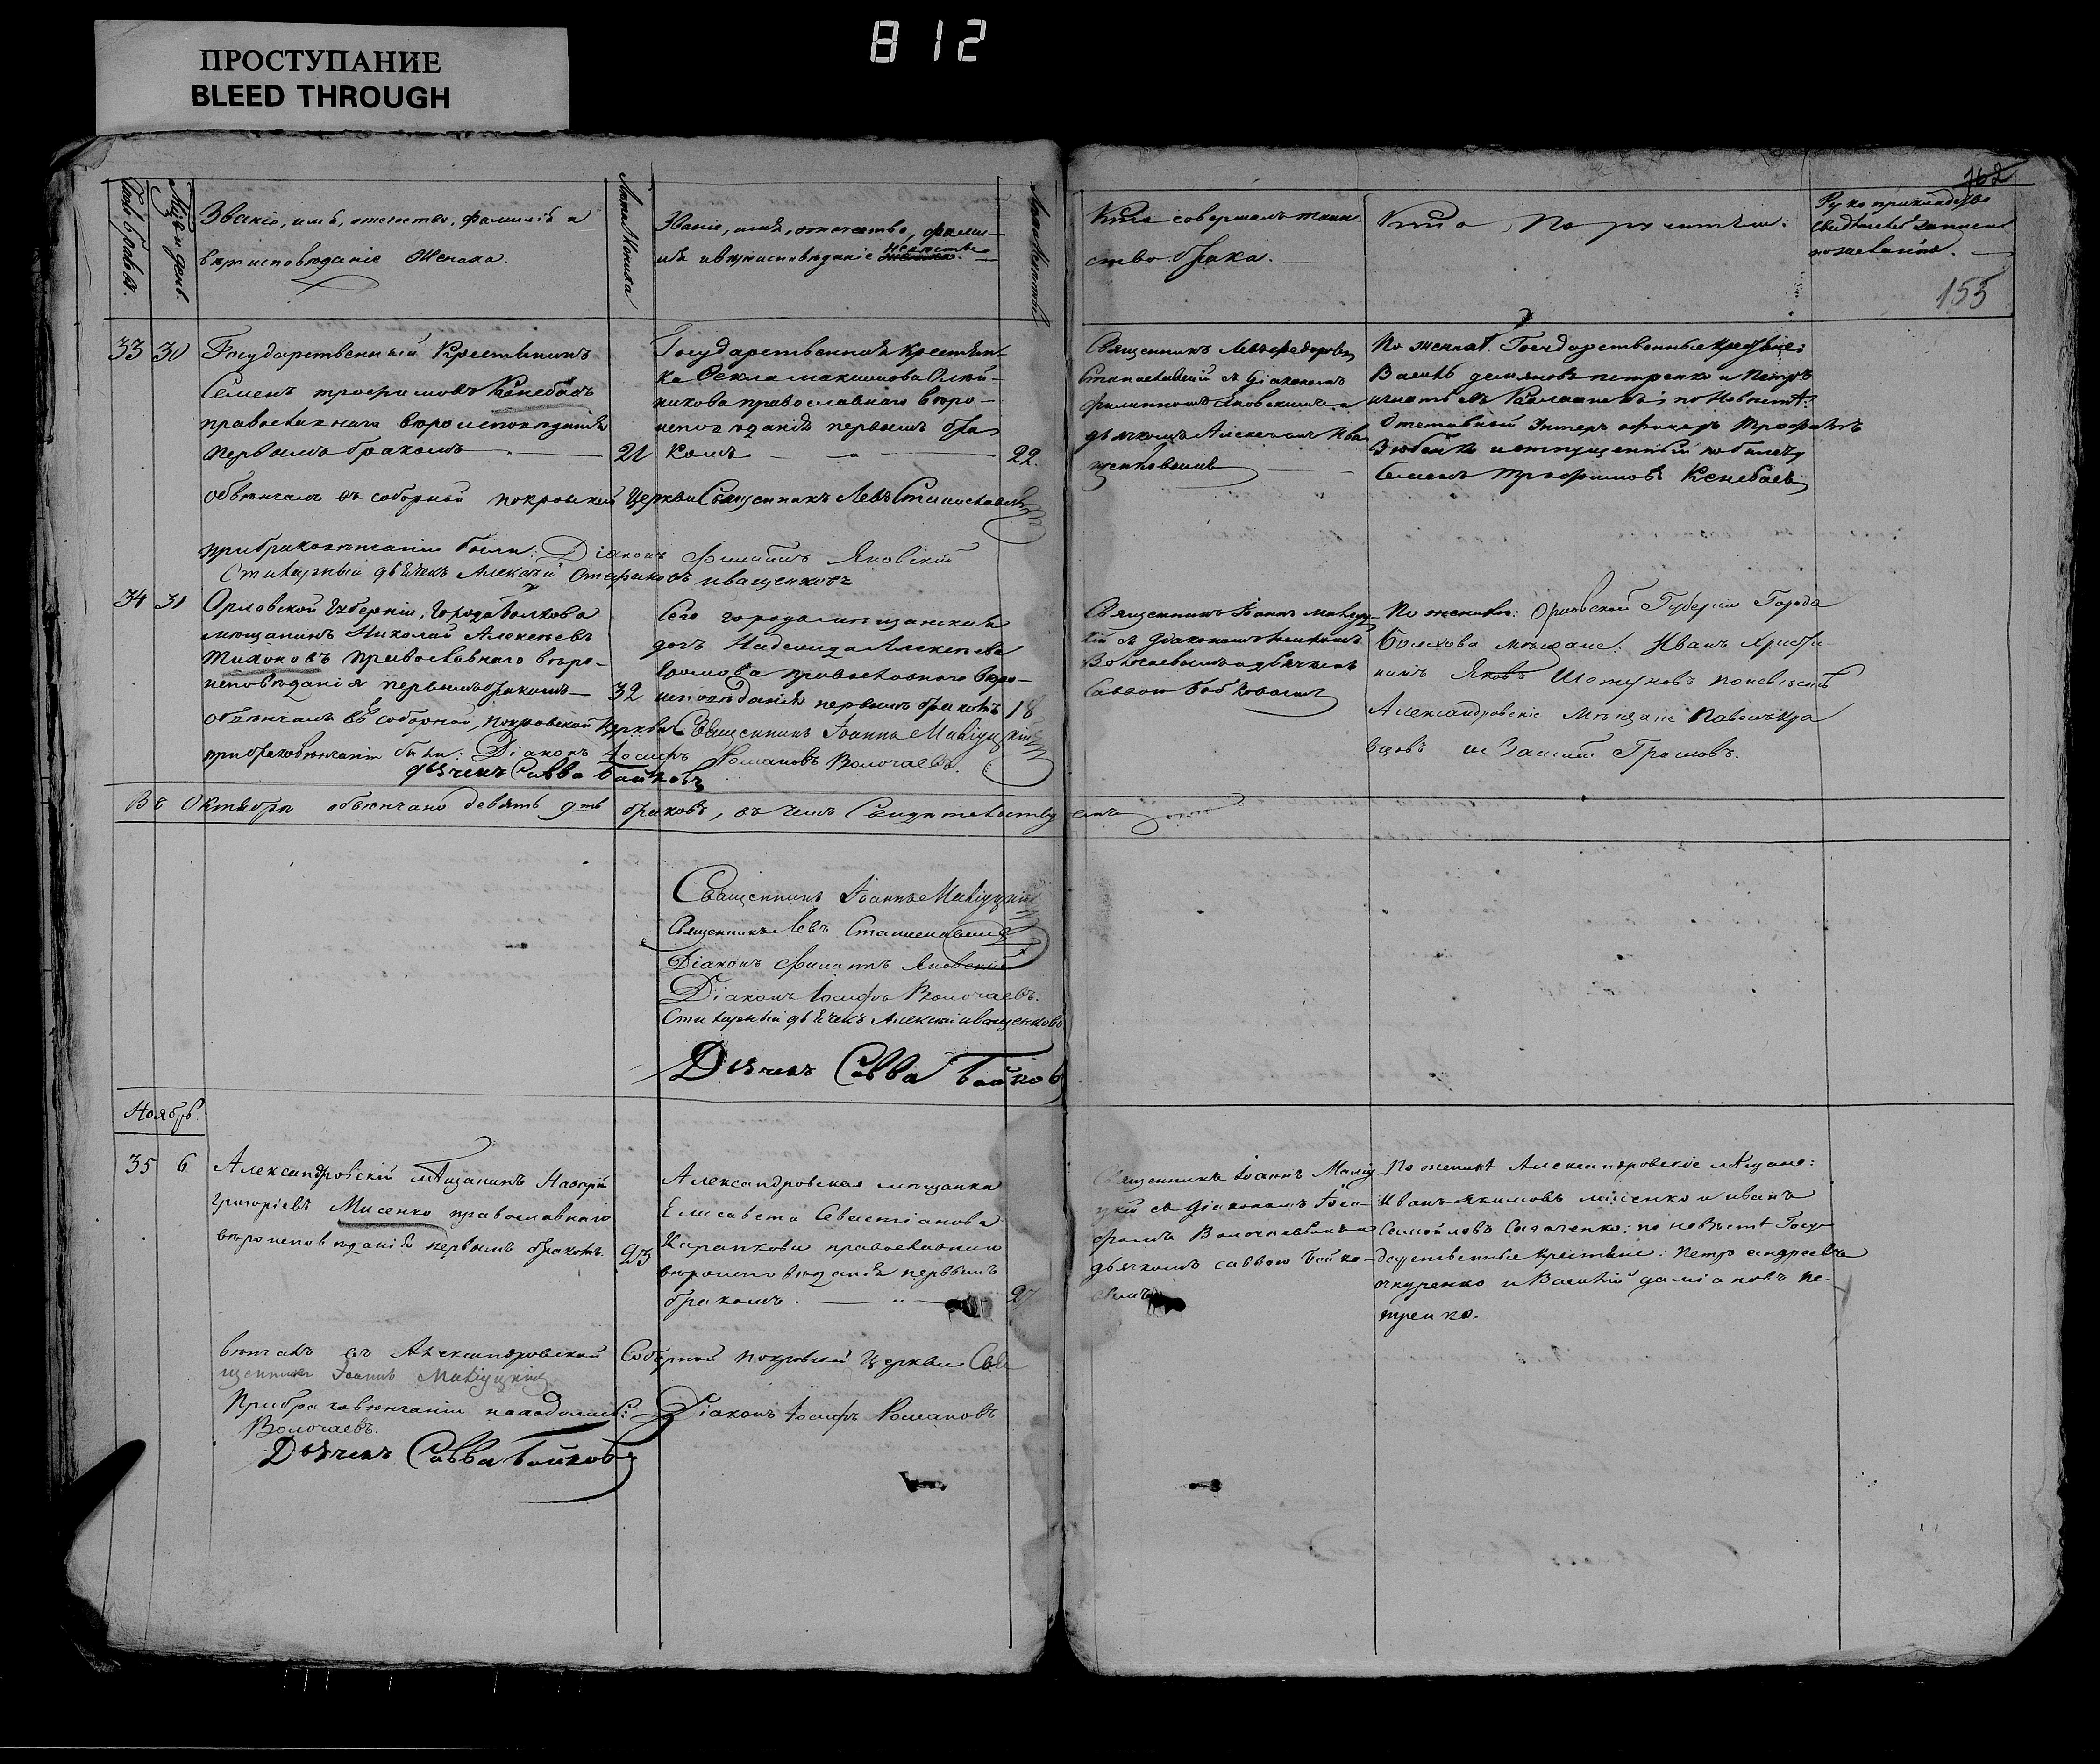 ПРОСТУПАНИЕ
BLEED THROUGH
812
162
155
Счетъ браковъ.
Мѣс. и день.
Званіе, имѣ, отечество, фамиліѣ и
вѣроисповѣданіе Жениха.
Лѣта Жениха
Званіе, имѣ, отечество, фами-
иѣ и вѣроисповѣданіе Невѣсты
Лѣта Невѣсты
Кто совершалъ таин
ство брака.
Кто Поручители:
Рукоприкладство
свидѣтелей записи
по желанію.
33 30
Государственный Крестьянинъ
Семенъ трофимовъ Кенебасъ
православнаго вѣроисповѣданіѣ
первымъ бракомъ 21
Государственнаѣ крестьян-
ка Фекла максимова Олей-
никова православнаго вѣро-
исповѣданіѣ первымъ бра
комъ 22.
Священникъ Левъ федоровъ
Станиславскій съ діакономъ
филиппомъ Яновскимъ и
дьячкомъ Алексеемъ Ива
щенковымъ
По женихѣ. Государственные крестьяне:
Василь демяновъ петренко и Петръ
игнатьевъ Калашникъ; по Невѣстѣ:
Отставный Унтеръ офицеръ Трофимъ
Зюбанъ и отпущенный по билету
Семенъ Трофимовъ Кенебасъ
обвѣнчалъ въ соборной покровской Церкви Священникъ Левъ Станиславскій
прибраковѣнчаніи были: Діаконъ Филиппъ Яновскій
Стихарный дьячекъ Алексѣй Стефановъ иващенковъ
34 31
Орловской Губерніи, города Болхова
мѣщанинъ Николай Алексѣевъ
Тихоновъ православнаго вѣро-
исповѣданіѣ первымъ бракомъ 32
Сего города мѣщанина
дочь Надежда Алексѣева
Громова православнаго вѣро-
исповѣданіѣ первымъ бракомъ 18
Священникъ Іоаннъ Малуц-
кій съ діакономъ Іосифомъ
Волочаевымъ и дьячкомъ
Саввою Бойковымъ
По женихѣ: Орловской Губерніи Города
Болхова мѣщане: Иванъ
Яковъ по невѣстѣ
Александровскіе мѣщане Павелъ Кра
вцовъ и Громовъ.
обвѣнчалъ въ соборной, покровской Церкви Священникъ Іоаннъ Малуцкій
прибраковѣнчаніи были: Діаконъ Іосифъ Романовъ Волочаевъ.
дьячекъ Савва Бойковъ
Въ Октябрѣ обвѣнчано девять 9ть браковъ, въ чемъ Свидѣтельствуемъ
Священникъ Іоаннъ Малуцкій
Священникъ Левъ Станиславскій
Діаконъ Филиппъ Яновскій
Діаконъ Іосифъ Волочаевъ.
Стихарный дьячекъ Алексѣй иващенковъ
Дьячекъ Савва Бойковъ
Ноябрь
35 6
Александровскій мѣщанинъ
григоріевъ Мисенко православнаго
вѣроисповѣданіѣ первымъ бракомъ. 23
Александровская мѣщанка
Елисавета Севастіанова
православнаго
вѣроисповѣданіѣ первымъ
бракомъ. 27
Священникъ Іоаннъ Малу
цкій съ діакономъ Іоси-
фомъ Волочаевымъ и
дьячкомъ саввою Бойко-
вымъ
По женихѣ Александровскіе мѣщане:
Иванъ Якимовъ мисенко и иванъ
Самойловъ Сагаченко: по невѣстѣ Госу-
дарственные крестьяне: Петръ андреевъ
и Василій даміановъ пе-
тренко.
вѣнчалъ въ Александровской Соборной покровской Церкви Свя
щенникъ Іоаннъ Малуцкій
Прибраковѣнчаніи находились: Діаконъ Іосифъ Романовъ
Волочаевъ.
Дьячекъ Савва Бойковъ